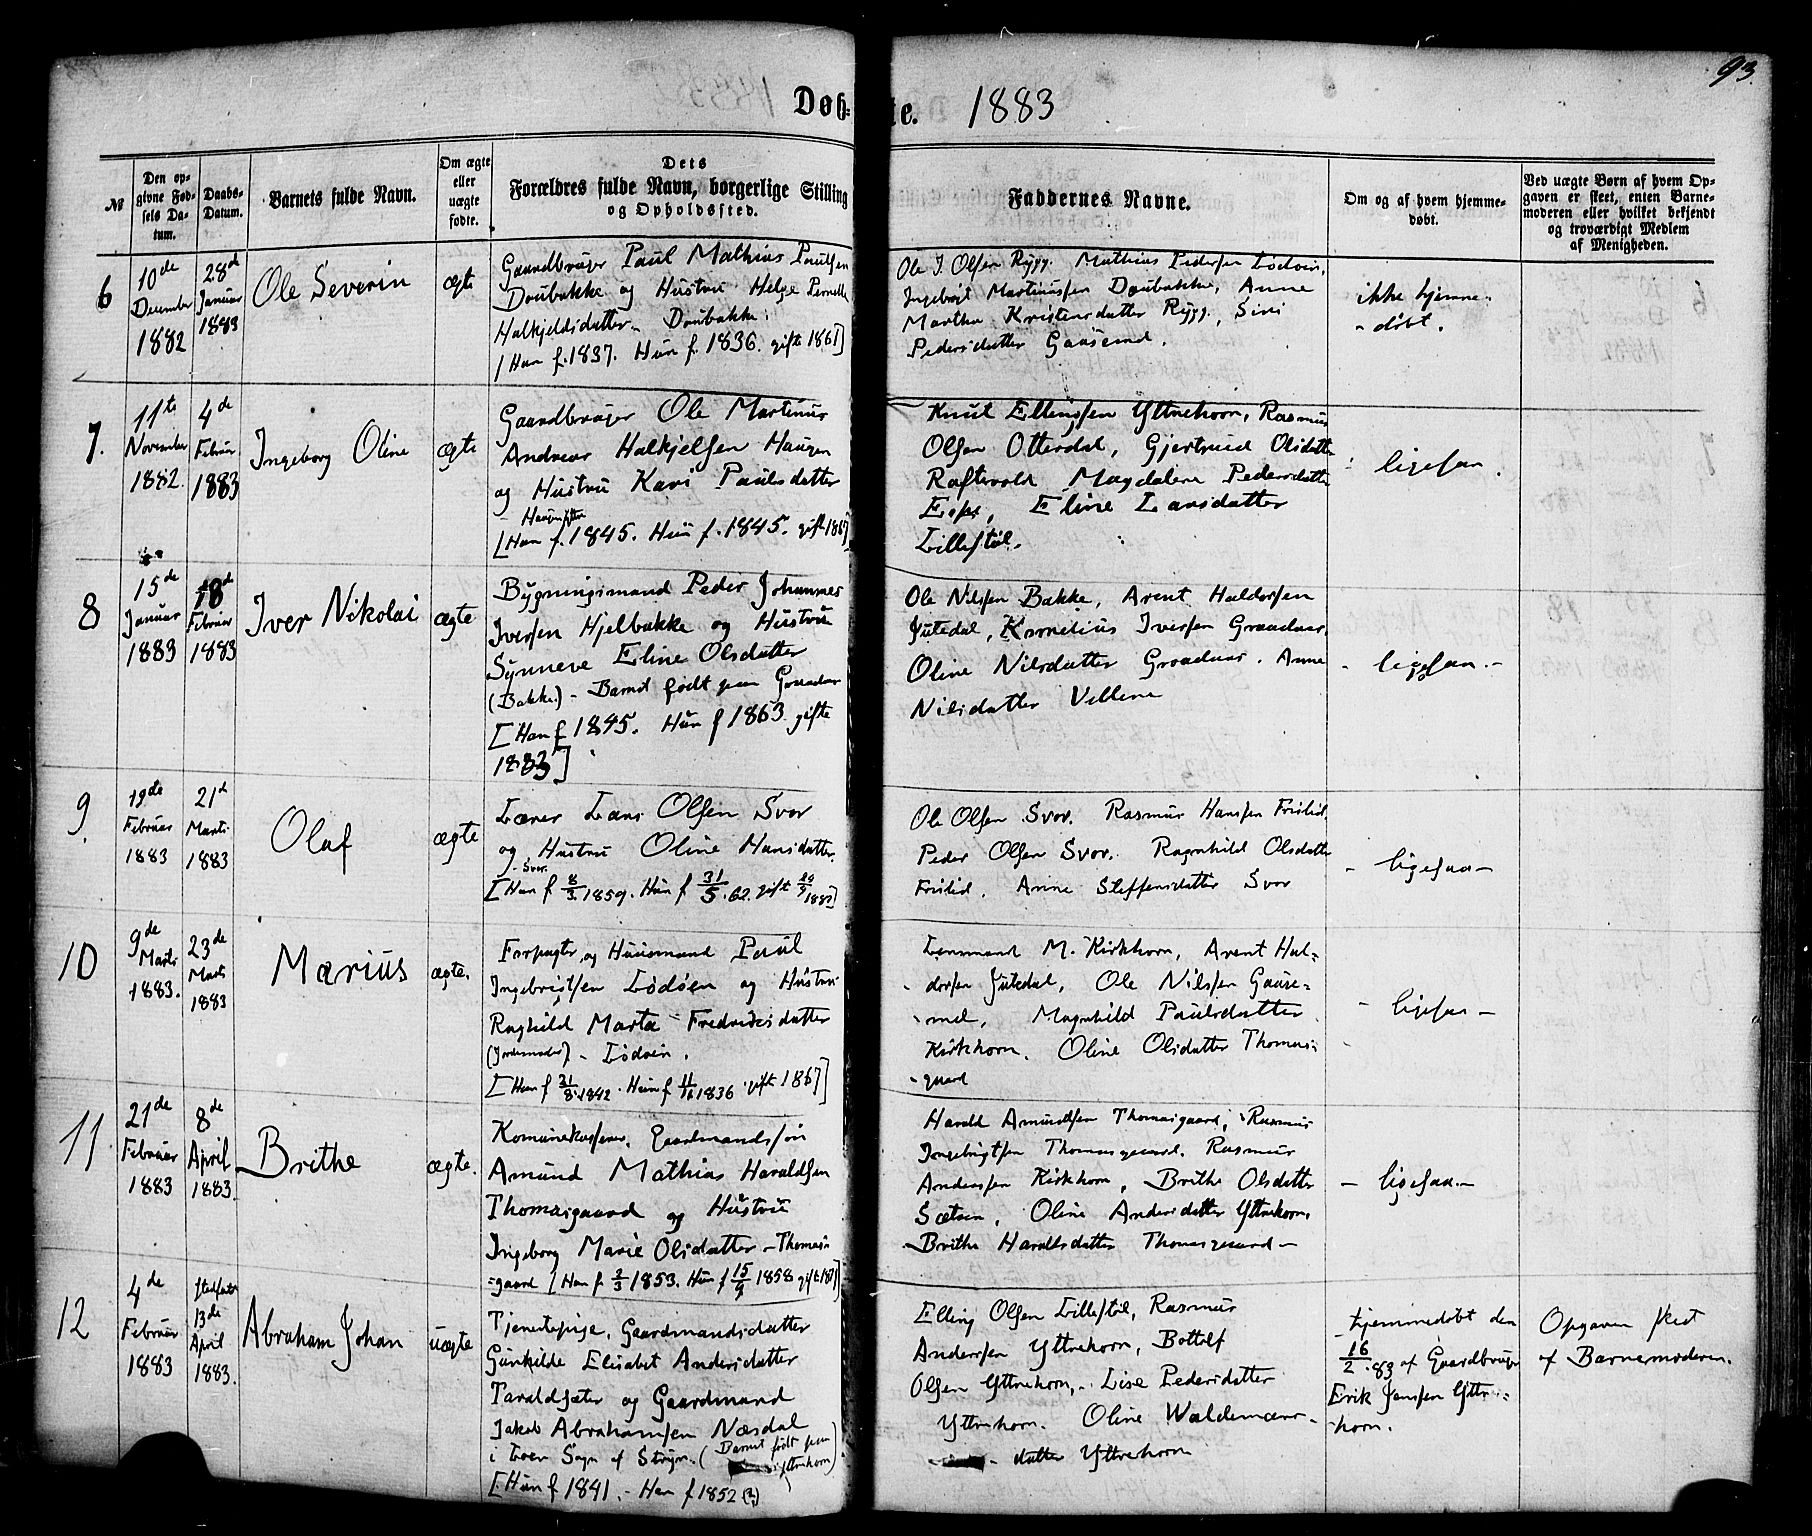 93
Døb-
te. 1883
№
Den op-
givne Fød-
sels Da-
tum.
Daabs-
Datum.
Barnets fulde Navn.
Om ægte
eller
uægte
fødte.
Dets
Forældres fulde Navn, borgerlige Stilling
og Opholdssted.
Faddernes Navne.
Om og af hvem hjemme-
døbt.
Ved uægte Børn af hvem Op-
gaven er skeet, enten Barne-
moderen eller hvilket bekjendt
og troværdigt Medlem
af Menigheden.
6
10de
December
1882
28d
Januar
1883
Ole Severin
ægte
Gaardbruger Paul Mathias Paulsen
Doubakke og Hustru Helge Pernelle
Halkjeldsdatter - Doubakke.
[Han f. 1837. Hun f. 1836. gift 1861]
Ole J. Olsen Rygg. Mathias Pedersen Lødøen,
Ingebrigt Martinussen Doubakke, Anne
Martha Kristensdatter Rygg, Siri
Pedersdatter Gausemel.
ikke hjemme-
- døbt.
7.
11te
November
1882.
4de
Februar
1883
Ingeborg Oline
ægte
Gaardbruger Ole Martinus
Andreas Halkjelsen Haugen
og Hustru Kari Paulsdatter
[Han f. 1845. Hun f. 1845. gift 1867]
Knut Ellingsen Yttrehorn, Rasmus
Olsen Otterdal, Gjertrud Olsdatter
Raftevold Magdalene Pedersdatter
Espe, Eline Larsdatter
Lillestøl.
- ligesaa.
8
15de
Januar
1883
18de
Februar
1883
Iver Nikolai
ægte
Bygningsmand Peder Johannes
Iversen Hjelbakke og Hustru
Synneve Eline Olsdatter
(Bakke) - Barnet født paa Graadas
[Han f 1845. Hun f 1863 gifte
1883]
Ole Nilsen Bakke, Arent Haldorsen
Jutedal, Kornelius Iversen Graadas,
Oline Nilsdatter Graadas. Anne
Nilsdatter Vellene
- ligesaa. -
9.
19de
Februar
1883
21d
Marts
1883
Olaf
ægte
Lærer Lars Olsen Svor
og Hustru Oline Hansdatter.
- Svor.
[Han f 8/3. 1859. Hun f 31/5. 62. gift
Ole Olsen Svor. Rasmus Hansen Frislid.
Peder Olsen Svor. Ragnhild Olsdatter
Frislid, Anne Steffensdatter Svor
- ligesaa -
10
9de
Marts
1883.
23de
Marts
1883
Marius
ægte.
Forpagter og Huusmand Paul
Ingebrigtsen Lødøen og Hustru
Raghild Marta Fredriksdatter
(Jordemoder) - Lødøen.
[Han f 21/8. 1842. Hun f 11/6 1836 gift 1867]
Lensmand M. Kirkhorn, Arent Hal-
dorsen Jutedal, Ole Nilsen Gause-
mel, Magnhild Paulsdatter
Kirkhorn. Oline Olsdatter Thomas-
gaard
- ligesaa -
11
21de
Februar
1883
8de
April
1883.
Brithe
ægte.
Komunekasserer, Gaardmandssøn
Amund Mathias Haraldsen
Thomasgaard og Hustru
Ingeborg Marie Olsdatter - Thomas-
=gaard [Han f. 2/3 1853. Hun f 15/9 1858
Harald Amundsen Thomasgaard, Rasmus
Ingebrigtsen Thomasgaard. Rasmus
Anderssen Kirkhorn, Brithe Olsdatter
Sætren, Oline Andersdatter Yttrehorn,
Brithe Haraldsdatter Thomasgaard -
- ligesaa -
12
4de
Februar
1883
stadfæstet
13de
April
1883.
Abraham Johan
uægte
Tjenestepige, Gaardmandsdatter
Gunhilde Elisabet Andersdatter
Taraldsæter og Gaardmand
Jakob Abrahamsen Næsdal
i Loen Sogn af Stryn. (Barnet født paa
Yttrehorn)
[Hun f 1841. - Han f 1852 (?)
Elling Olsen Lillestøl, Rasmus
Anderssen Yttrehorn, Bottolf
Olsen Yttrehorn, - Lise Pedersdatter
Yttrehorn. Oline Waldemars-
- datter Yttrehorn
Hjemmedøbt den
16/2. 83 af Gaardbruger
Erik Jenssen Yttre-
-horn.
Opgaven skeet
af Barnemoderen.